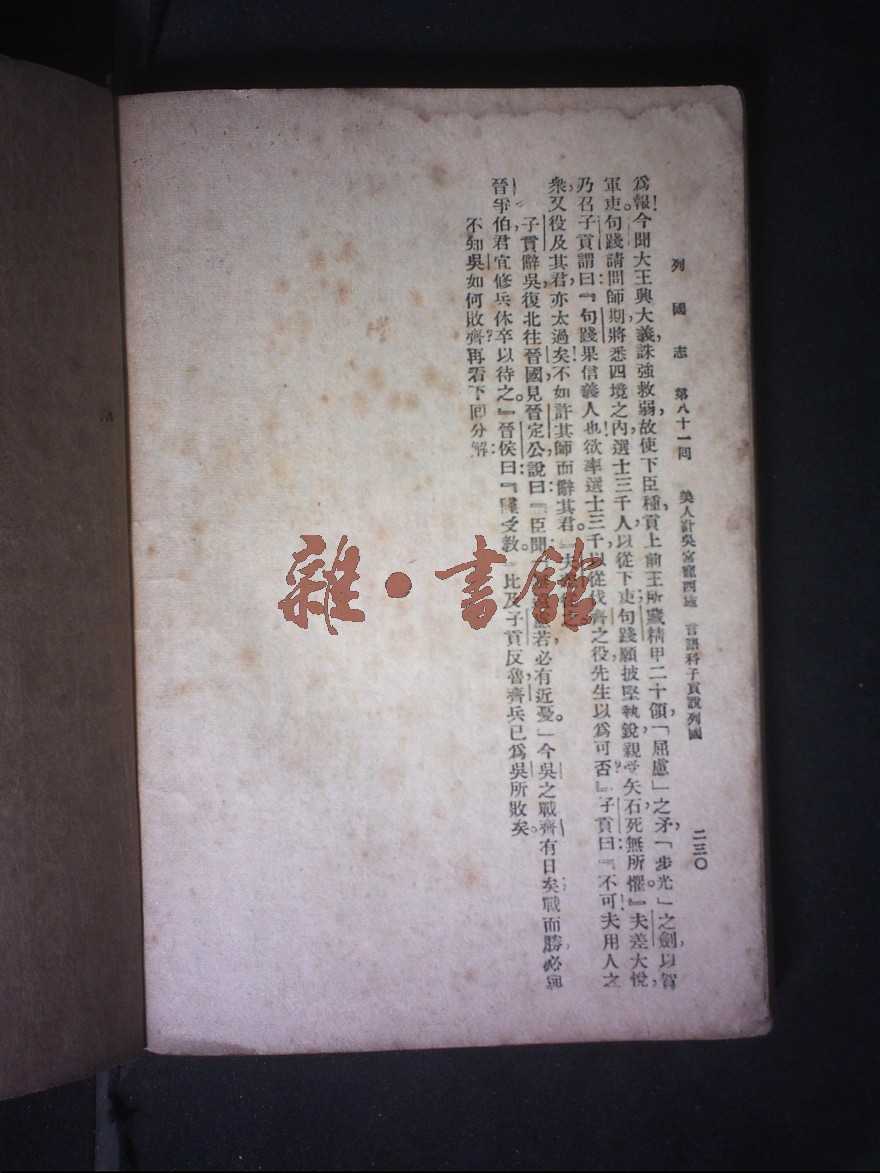 列國志 第八十一回 美人計吳宮寵西施 言語科子貢說列國 二三〇
爲報！今聞大王興大義，誅強救弱，故使下臣種，貢上前王所藏精甲二十領，「屈盧」之矛，「步光」之劍，以賀
軍吏。句踐請問師期，將悉四境之內，選士三千人，以從下吏；句踐願披堅執銳，親受矢石，死無所懼。』夫差大悅，
乃召子貢謂曰：『句踐果信義人也！欲率選士三千，以從伐齊之役，先生以爲可否？』子貢曰：『不可！夫用人之
衆，又役及其君，亦太過矣！不如許其師而辭其君。』夫
子貢辭吳，復北往晉國，見晉定公，說曰：『臣聞 若必有近憂。」今吳之戰齊有日矣，戰而勝，必與
晉爭伯，君宜修兵休卒以待之。』晉侯曰：『謹受教。』比及子貢反魯，齊兵已爲吳所敗矣。
不知吳如何敗齊？再看下回分解
雜·書館